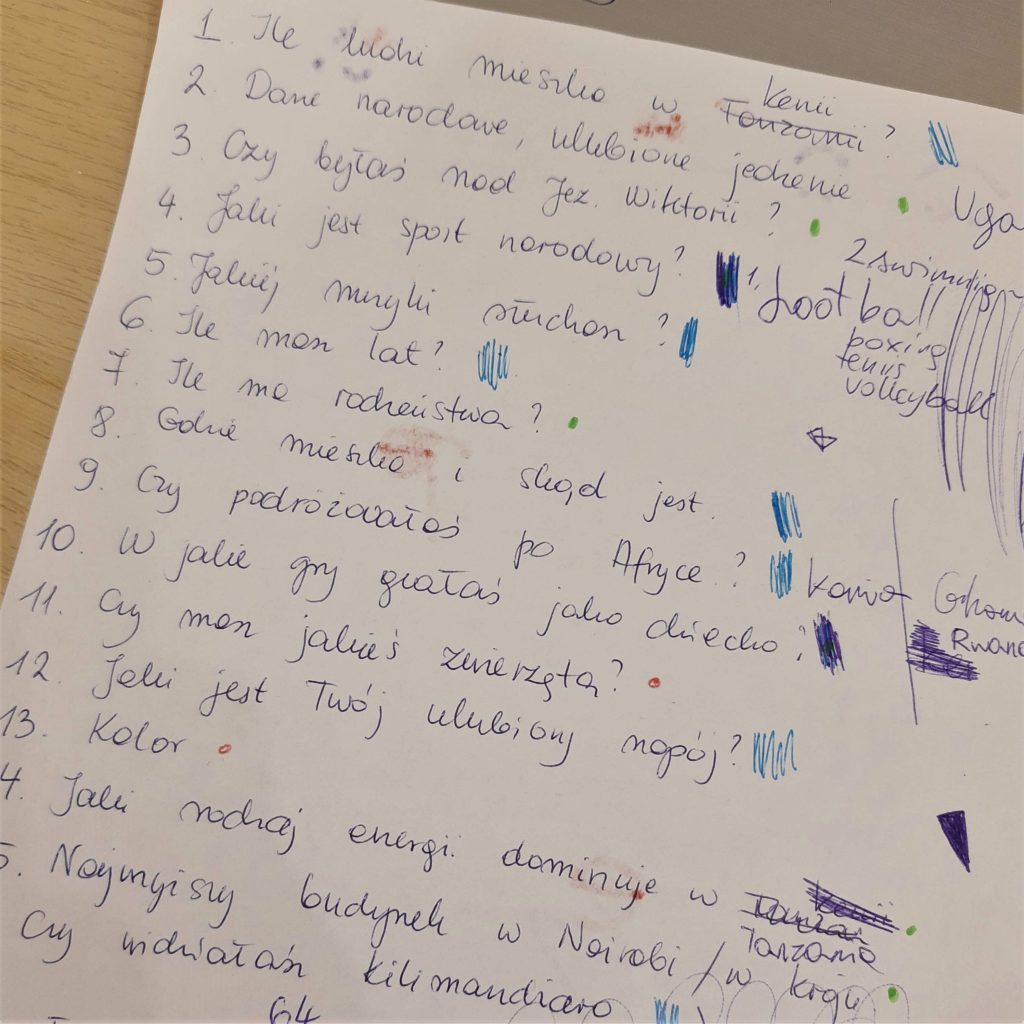 1. Ile ludzi mieszka w Tanzanii Kenii ?
2. Dane narodowe, ulubione jedzenie
3. Czy byłaś nad Jez. Wiktorii ?
4. Jaki jest sport narodowy?
2 swimming
1. football
boxing
tenis
volleyball
5. Jakiej muzyki słuchasz ?
6. Ile masz lat?
7. Ile ma rodzeństwa ?
8. Gdzie mieszka i skąd jest.
9. Czy podróżowałaś po Afryce ?
10. W jakie gry grałaś jako dziecko ?
11. Czy masz jakieś zwierzęta?
12. Jaki jest Twój ulubiony napój?
13. Kolor
4. Jaki rodzaj energii dominuje w Kenii
Tanzania
5. Najwyższy budynek w Nairobi / w kraju
Czy widziałaś Kilimandżaro
64